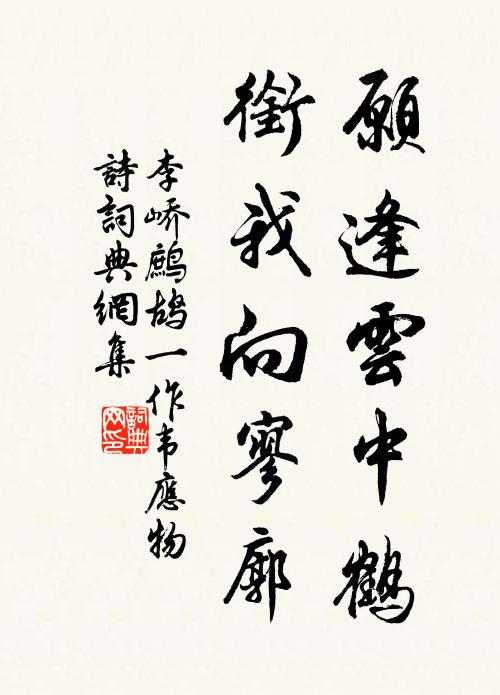 願逢雲中鶴
銜我向寥廓
李嶠鷓鴣一作韦應物
詩詞典網集
詞典网印